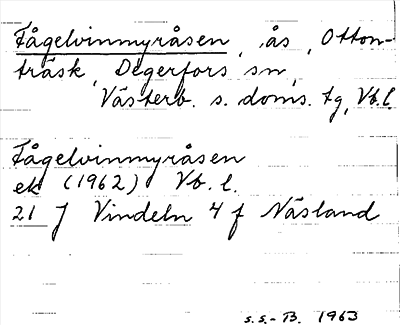 Fågelvinmyråsen, ås, Otton-
träsk, Degerfors sn,
Västerb. s. doms. tg, Vb. l.
Fågelvinmyråsen
ek (1962) Vb. l.
21 J Vindeln 4 f Näsland
s.s.-B. 1963